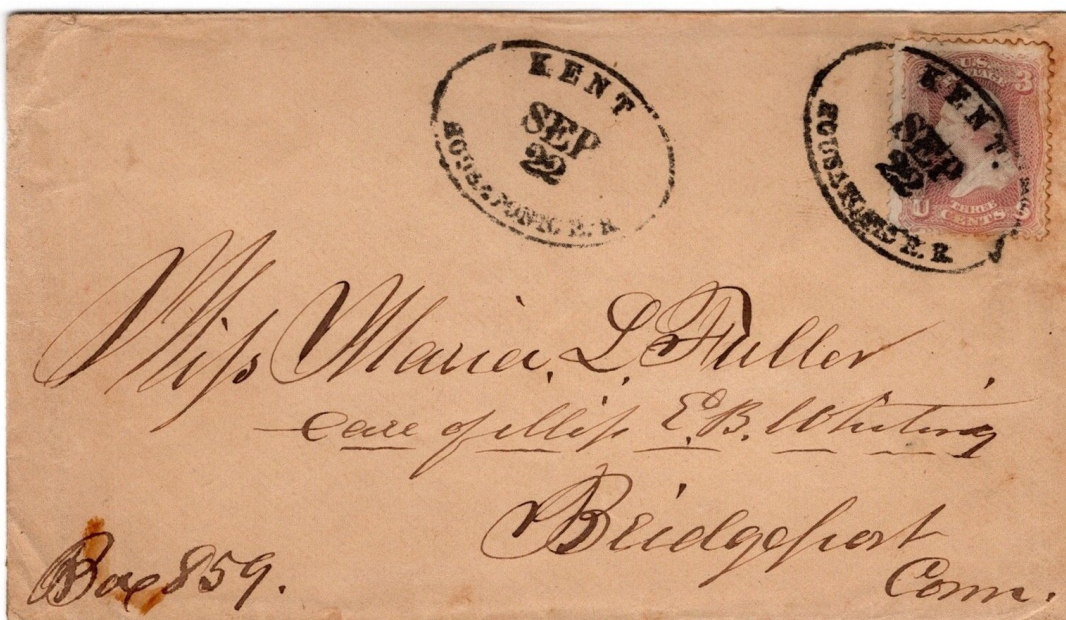 KENT
SEP
22
HOUSATONIC R. R.
KENT.
SEP
22
HOUSATONIC R. R.
U.S.
3
U
THREE
CENTS
Miss Maria. L. Fuller
care of Miss E. B. Whiting
Bridgeport
Conn.
Box 859.